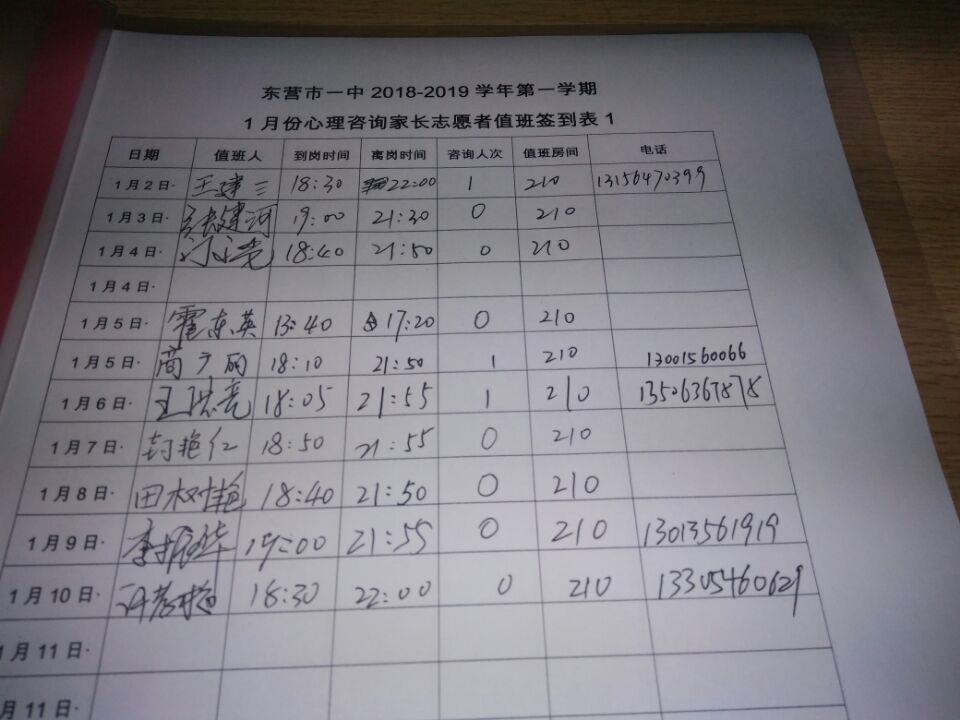 东营市一中 2018-2019 学年第一学期
1 月份心理咨询家长志愿者值班签到表 1
日期 值班人 到岗时间 离岗时间 咨询人次 值班房间 电话
1月2日· 王建三 18:30 22:00 1 210 13156470399
1月3日· 张建河 19:00 21:30 0 210
1月4日· 18:40 21:50 0 210
1月4日·
1月5日· 霍东英 13:40 17:20 0 210
1月5日· 18:10 21:50 1 210 13001560066
1月6日· 王洪亮 18:05 21:55 1 210 13506367878
1月7日· 封艳红 18:50 21:55 0 210
1月8日· 田树艳 18:40 21:50 0 210
1月9日· 李振华 19:00 21:55 0 210 13013561919
1月10日· 18:30 22:00 0 210 13305460629
1月11日·
月11日·